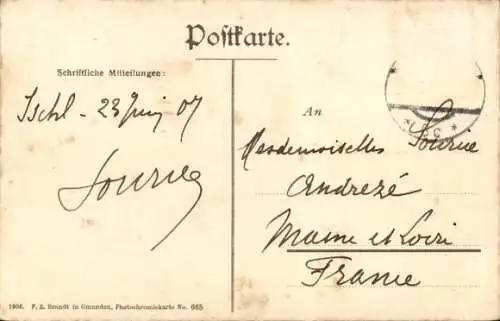 Postkarte.
Schriftliche Mitteilungen:
Ischl - 23 Juin 07
Sourice
An
Mesdemoiselles Sourice
Andrezé
Maine et Loire
France
1906. F. E. Brandt in Gmunden, Photochromiekarte No. 665